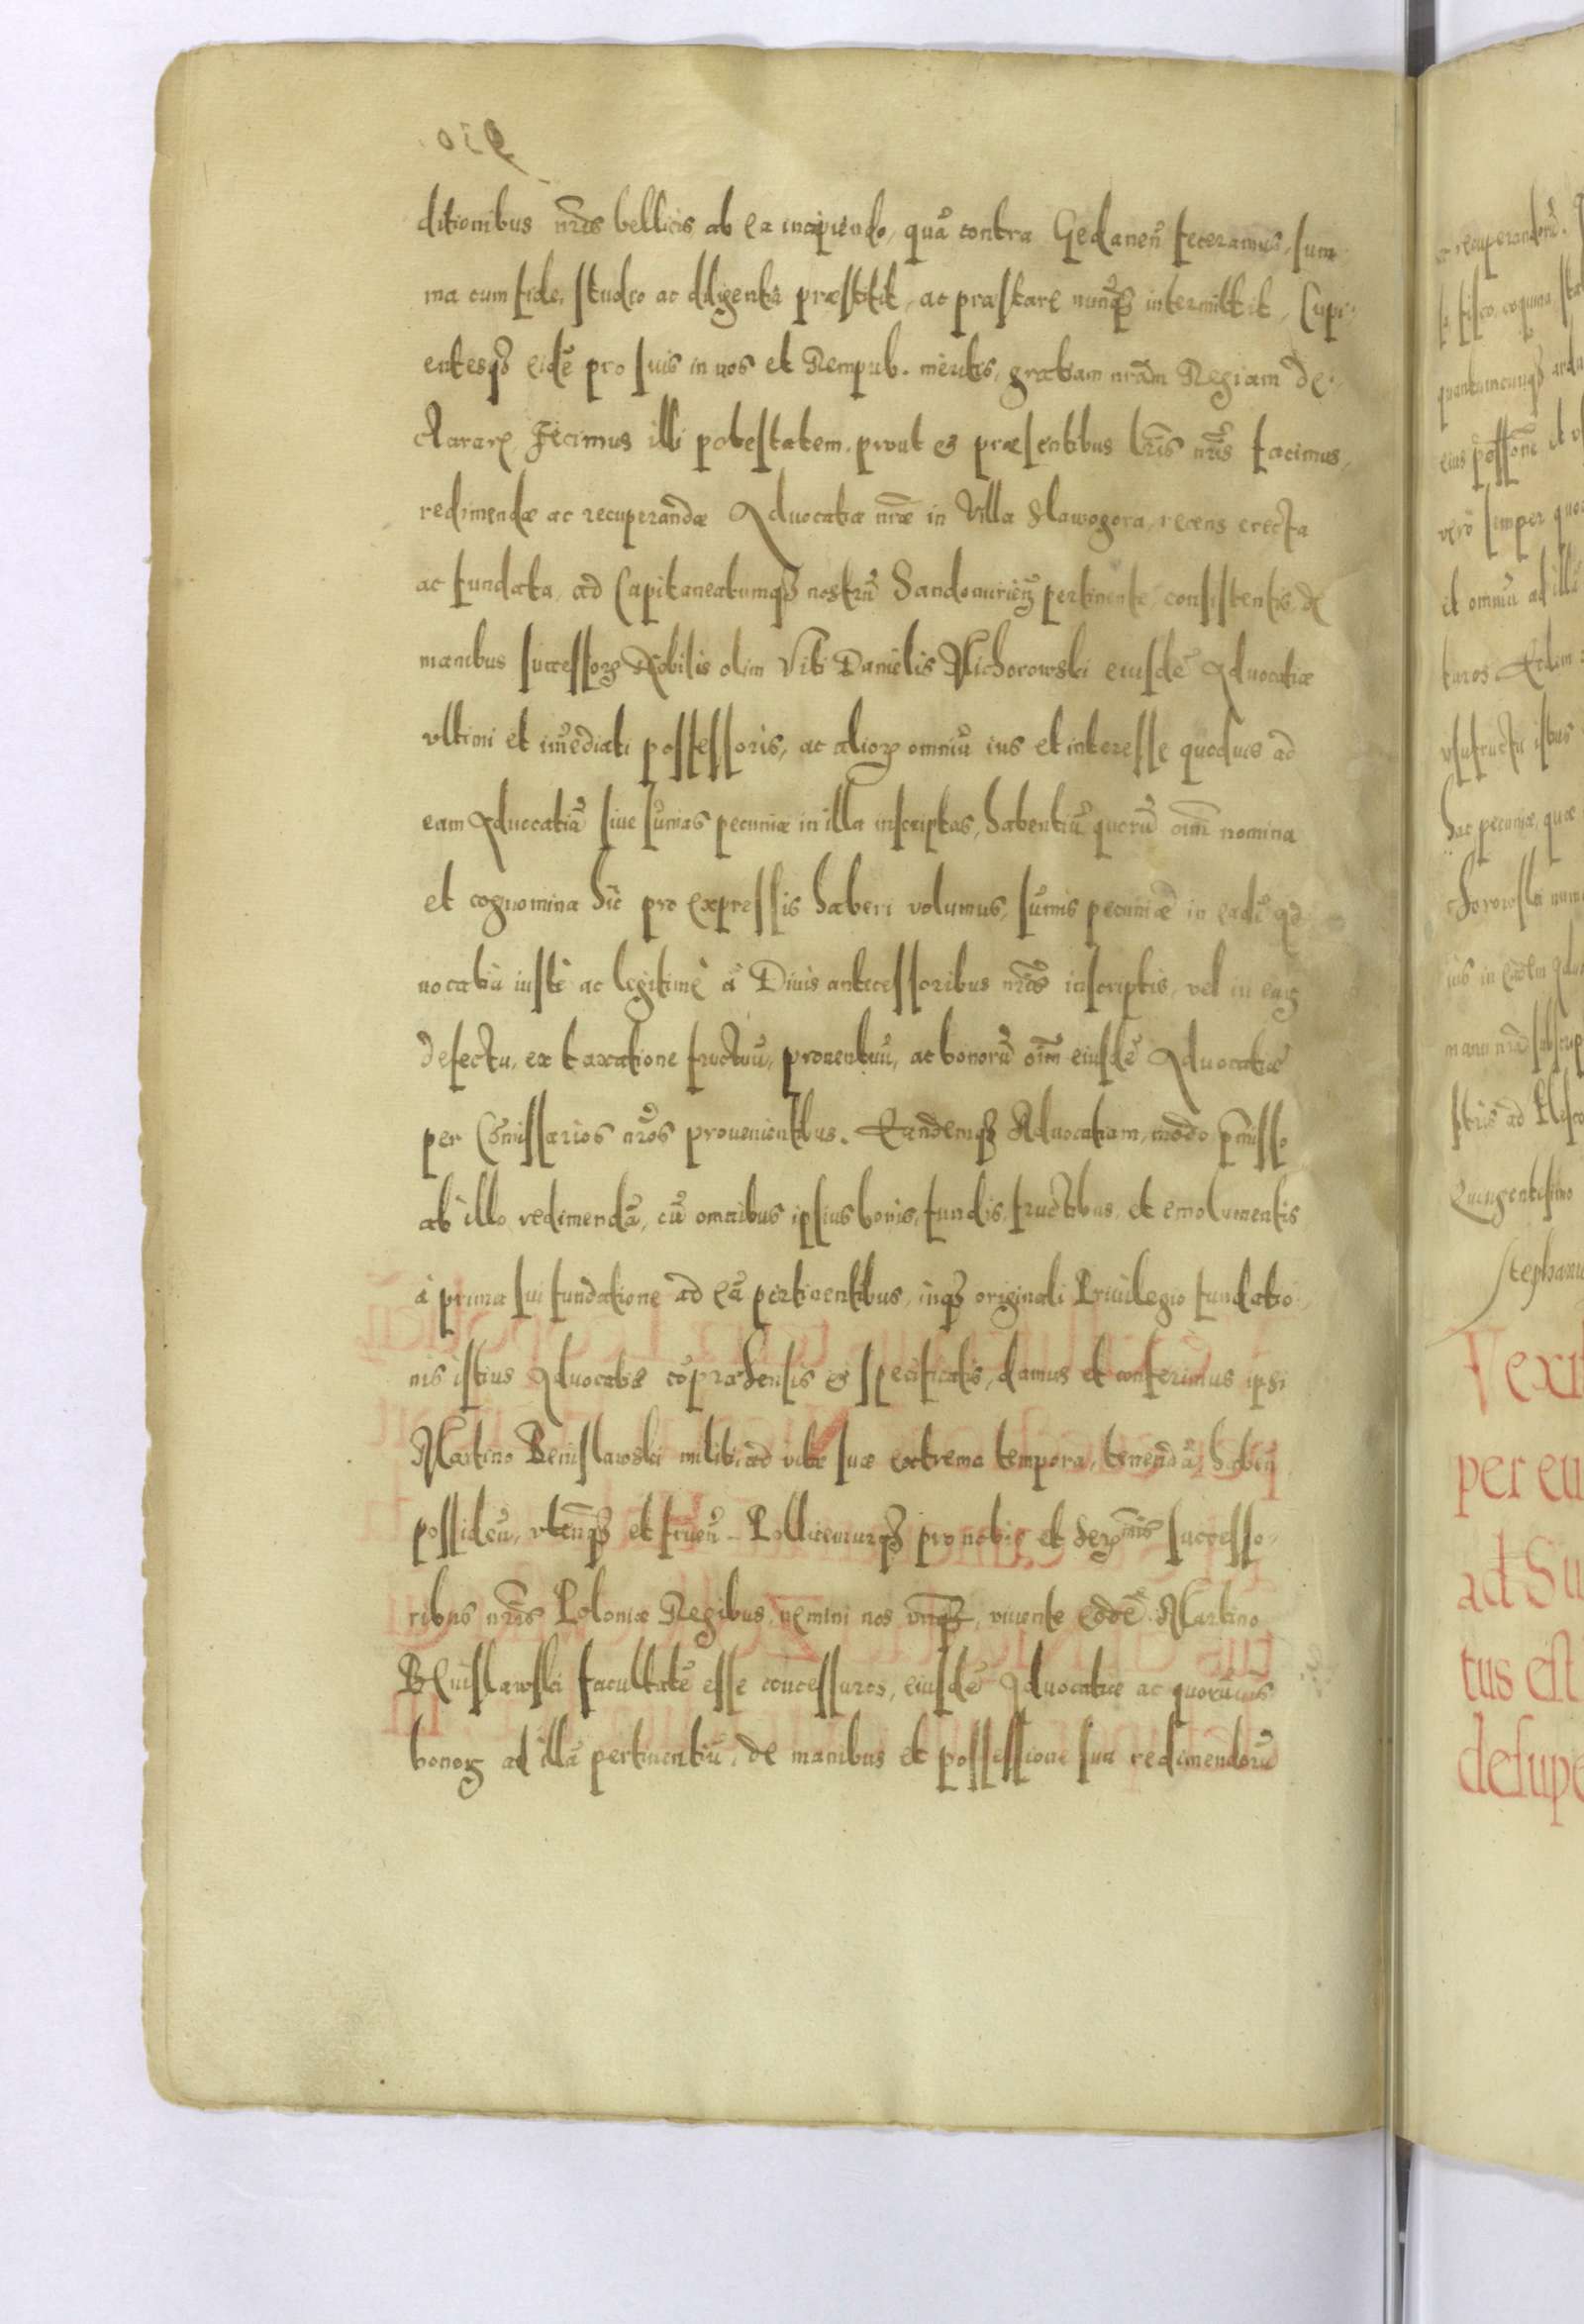 ditionibus nr̃is bellicis ab ea incipiendo, quã contra Gedaneñ feceramus, sum
ma cum fide, studio ac diligentia præstitit, ac præstare nunq̃ intermittit, Cupi-
entesq; eidẽ pro suis in nos et Rempub. meritis, gratiam nr̃am Regiam de-
clarare. Fecimus illi potestatem, prout & præsentibus lr̃is nr̃is facimus,
redimendæ ac recuperandæ Aduocatiæ nr̃æ in Villa Slawogora, recens erecta
ac fundata, ad Capitaneatumq; nostrũ Sandomirieñ pertinente, consistentis, de
manibus successoꝝ Nobilis olim Viti Danielis Michorowski eiusdẽ Aduocatiæ
vltimi et im̃ediati possessoris, ac alioꝝ omniũ ius et interesse quoduis ad
eam Aduocatiã siue sum̃as pecuniæ in illa inscriptas, habentiũ, quorũ oĩm nomina
et cognomina hic pro expressis haberi volumus, sum̃is pecuniæ in eadẽ Ad
uocatia iustè ac legitimè à Diuis antecessoribus nr̃is inscriptis, vel in eaꝝ
defectu, ex taxatione fructuũ, prouentuũ, ac bonorũ oĩm eiusdẽ Aduocatiæ
per Com̃issarios nr̃os prouenientibus. Eandemq; Aduocatiam, modo p̃misso
ab illo redimendã, cũ omnibus ipsius bonis, fundis, fructibus, et emolumentis
à prima sui fundatione ad eã pertinentibus, inq; originali Priuilegio fundatio-
nis istius Aduocatiæ cõpræhensis & specificatis, damus et conferimus ipsi
Martino Benislawski militi, ad vitæ suæ extrema tempora, tenendã, habeñ
possideñ, vteñq; et frueñ. Pollicemurq; pro nobis et Ser̃mis Successo-
ribus nr̃is Poloniæ Regibus, nemini nos vnq̃, viuente eodẽ Martino
Benislawski facultatẽ esse concessuros, eiusdẽ Aduocatiæ ac quorũuis
bonoꝝ ad illã pertinentiũ, de manibus et possessione sua redimendorũ